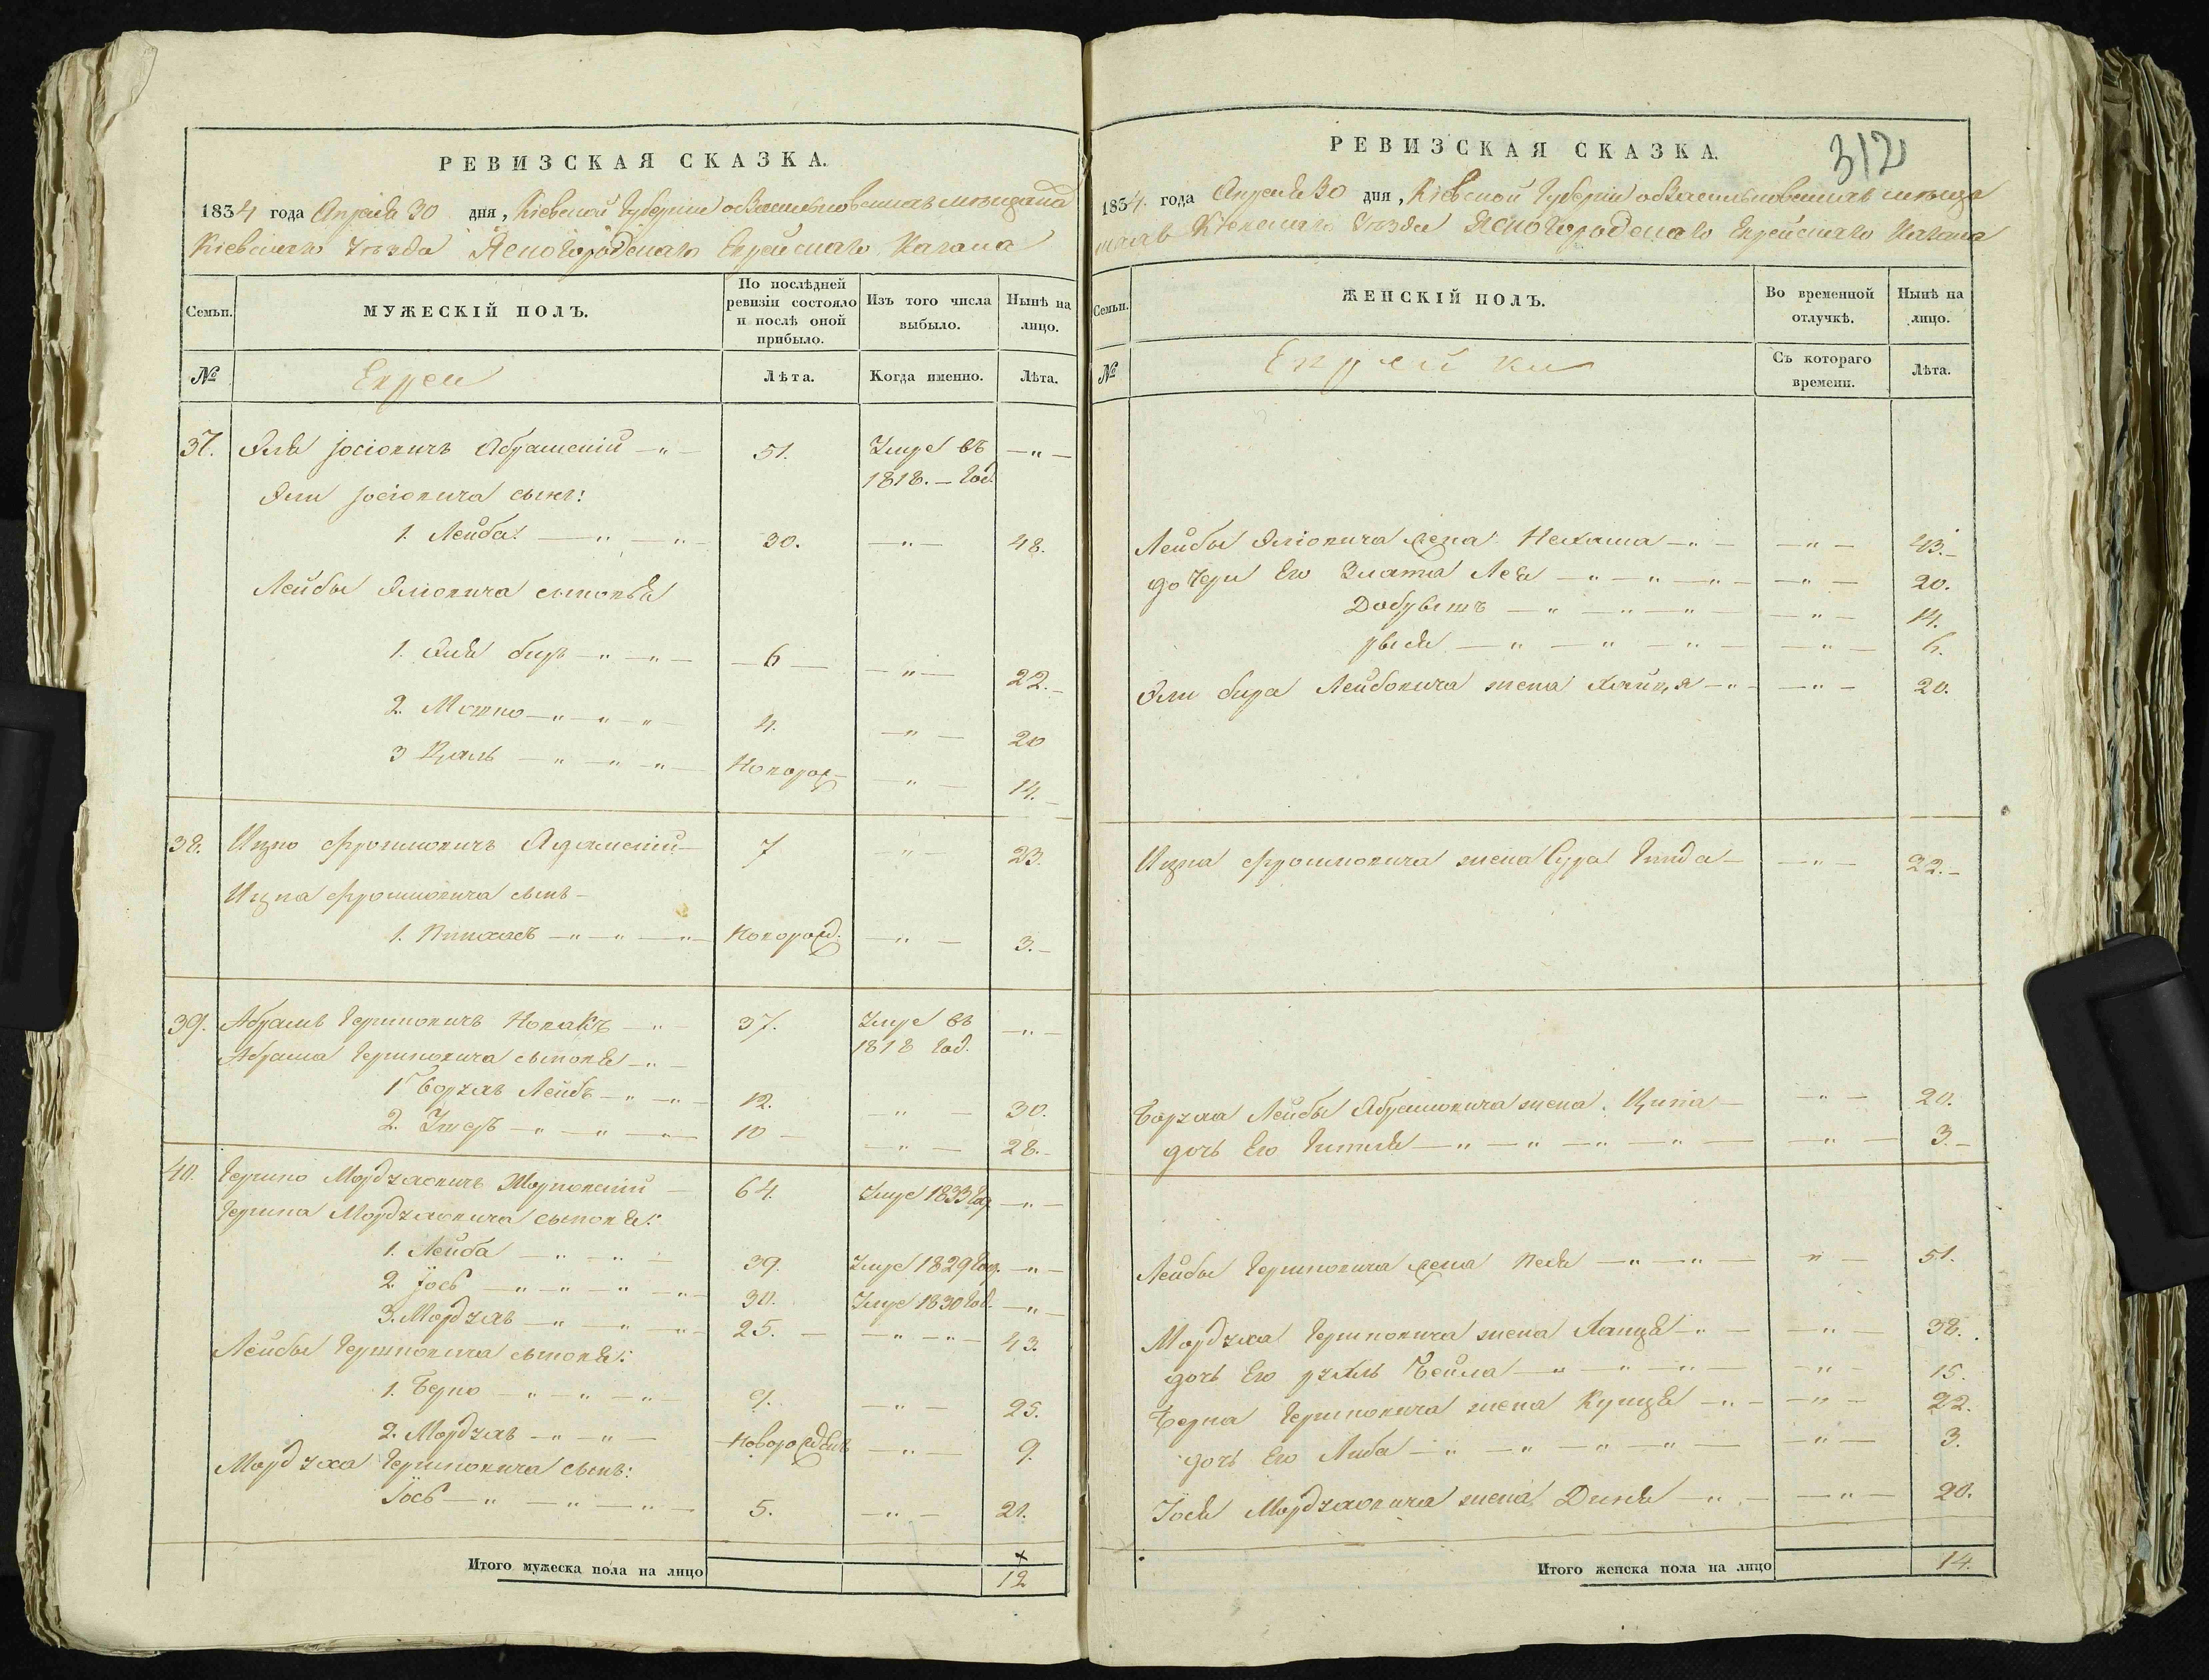 РЕВИЗСКАЯ СКАЗКА.
1834 года Апреля 30 дня, Кіевской Губерніи о Васильковских мещана
Кіевскаго Уезда Ясногородскаго Еврейскаго Кагала
Семьи.
МУЖЕСКІЙ ПОЛЪ.
По послѣдней ревизіи состояло и послѣ оной прибыло.
Изъ того числа выбыло.
Нынѣ на лицо.
№
Евреи
Лѣта.
Когда именно.
Лѣта.
37. Эля Іосіовичъ Абрамскій 51. Умре въ
1818. год
Эли Іосіовича сынъ:
1. Лейба 30. 48.
Лейбы Эліовича сыновья
1. Эля бир 6 22.
2. Мошко 4. 20
3 Цаль Новорож 14.
38. Ицко Фроимовичъ 7 23.
Ицка Фроимовича сынъ
1. Пинхасъ Новорожд. 3.
39. Абрамъ Гершковичъ Новакъ 37. Умре въ
1818 год.
Абрама Гершковича сыновья
1 Борхав Лейбъ 12. 30.
2. Ушеръ 10 28.
40. Гершко Мордхаовичъ 64. Умре 1833 год
Гершка Мордхаовича сыновья:
1. Лейба 39. Умре 1829 год.
2. Іось 30. Умре 1830 год.
3. Мордхав 25. 43.
Лейбы Гершковича сыновья:
1. Берко 9. 25.
2. Мордхав Новорожденъ 9.
Мордхаа Гершковича сынъ:
Іось 5. 21.
Итого мужеска пола на лицо 12
РЕВИЗСКАЯ СКАЗКА.
312
1834. года Апреля 30 дня, Кіевской Губерніи о Васильковских меща
нахъ Кіевскаго Уезда Ясногородскаго Еврейскаго Кагала
Семьи.
ЖЕНСКІЙ ПОЛЪ.
Во временной отлучкѣ.
Нынѣ на лицо.
№
Еврейки
Съ котораго времени.
Лѣта.
Лейбы Эліовича жена Нехама 43.
дочери Его Злата Лея 20.
Добрышъ 14.
рыся 6.
Эли бира Лейбовича жена Хайця 20.
Ицка Фроимовича жена Сура Гинда 22.
Борхаа Лейбы Абрамовича жена Ципа 20.
дочь Его Гитля 3.
Лейбы Гершковича жена Песя 51.
Мордхаа Гершковича жена Ханця 38.
дочь Его рухль Бейла 15.
Берка Гершковича жена 22.
дочь Его Либа 3.
Іося Мордхаовича жена Диня 20.
Итого женска пола на лицо 14.